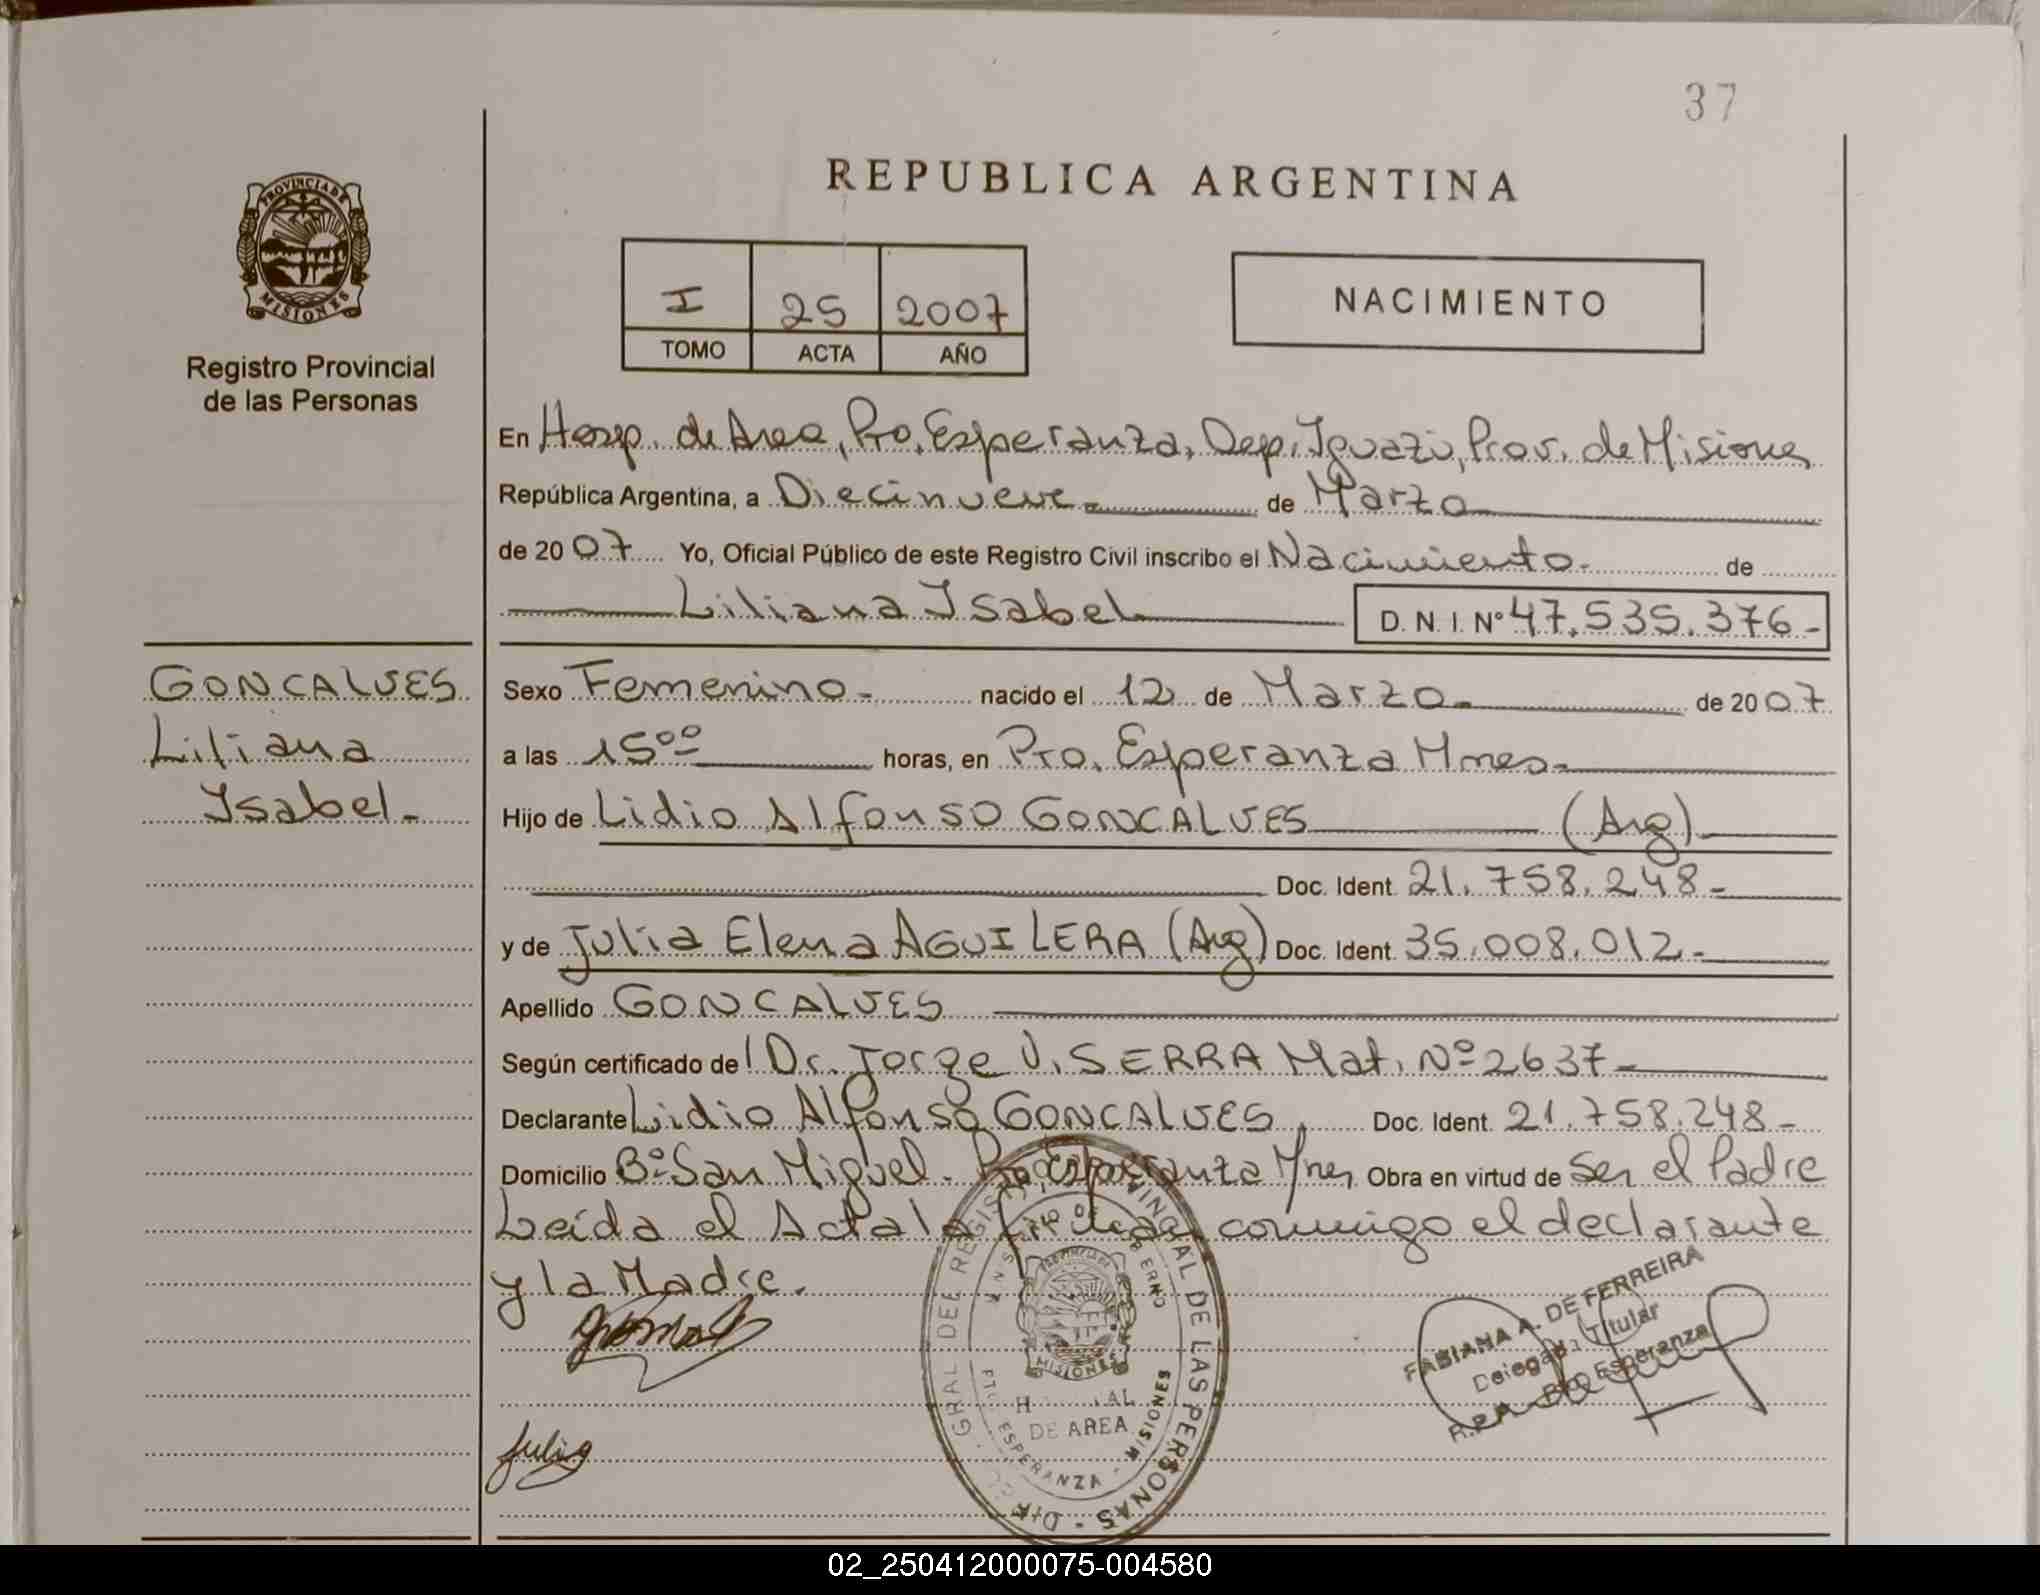 37
REPUBLICA ARGENTINA
PROVINCIA DE
MISIONES
Registro Provincial
de las Personas
I 25 2007
TOMO ACTA AÑO
NACIMIENTO
En Hosp. de Area, Pto. Esperanza, Dep. Iguazú, Prov. de Misiones
República Argentina, a Diecinueve de Marzo
de 2007 Yo, Oficial Público de este Registro Civil inscribo el Nacimiento de
Liliana Isabel D.N.I. Nº 47.535.376-
GONCALVES
Liliana
Isabel.
Sexo Femenino nacido el 12 de Marzo de 2007
a las 15oo horas, en Pto. Esperanza Mnes
Hijo de Lidio Alfonso GONCALVES (Arg)
Doc. Ident. 21.758.248-
y de Julia Elena AGUILERA (Arg) Doc. Ident. 35.008.012-
Apellido GONCALVES
Según certificado del Dr. Jorge V. SERRA Mat. Nº 2637-
Declarante Lidio Alfonso GONCALVES, Doc. Ident. 21.758.248-
Domicilio Bº San Miguel. Pto Esperanza Mnes Obra en virtud de Ser el Padre
Leida el Acta la firman conmigo el declarante
y la Madre.
FABIANA A. DE FERREIRA
Delegada Titular
R.P.P. Pto. Esperanza
GRAL DEL REGISTRO PROVINCIAL DE LAS PERSONAS
PROVINCIA DE
MISIONES
DE AREA
PTO. ESPERANZA - MISIONES
Julia
02_250412000075-004580